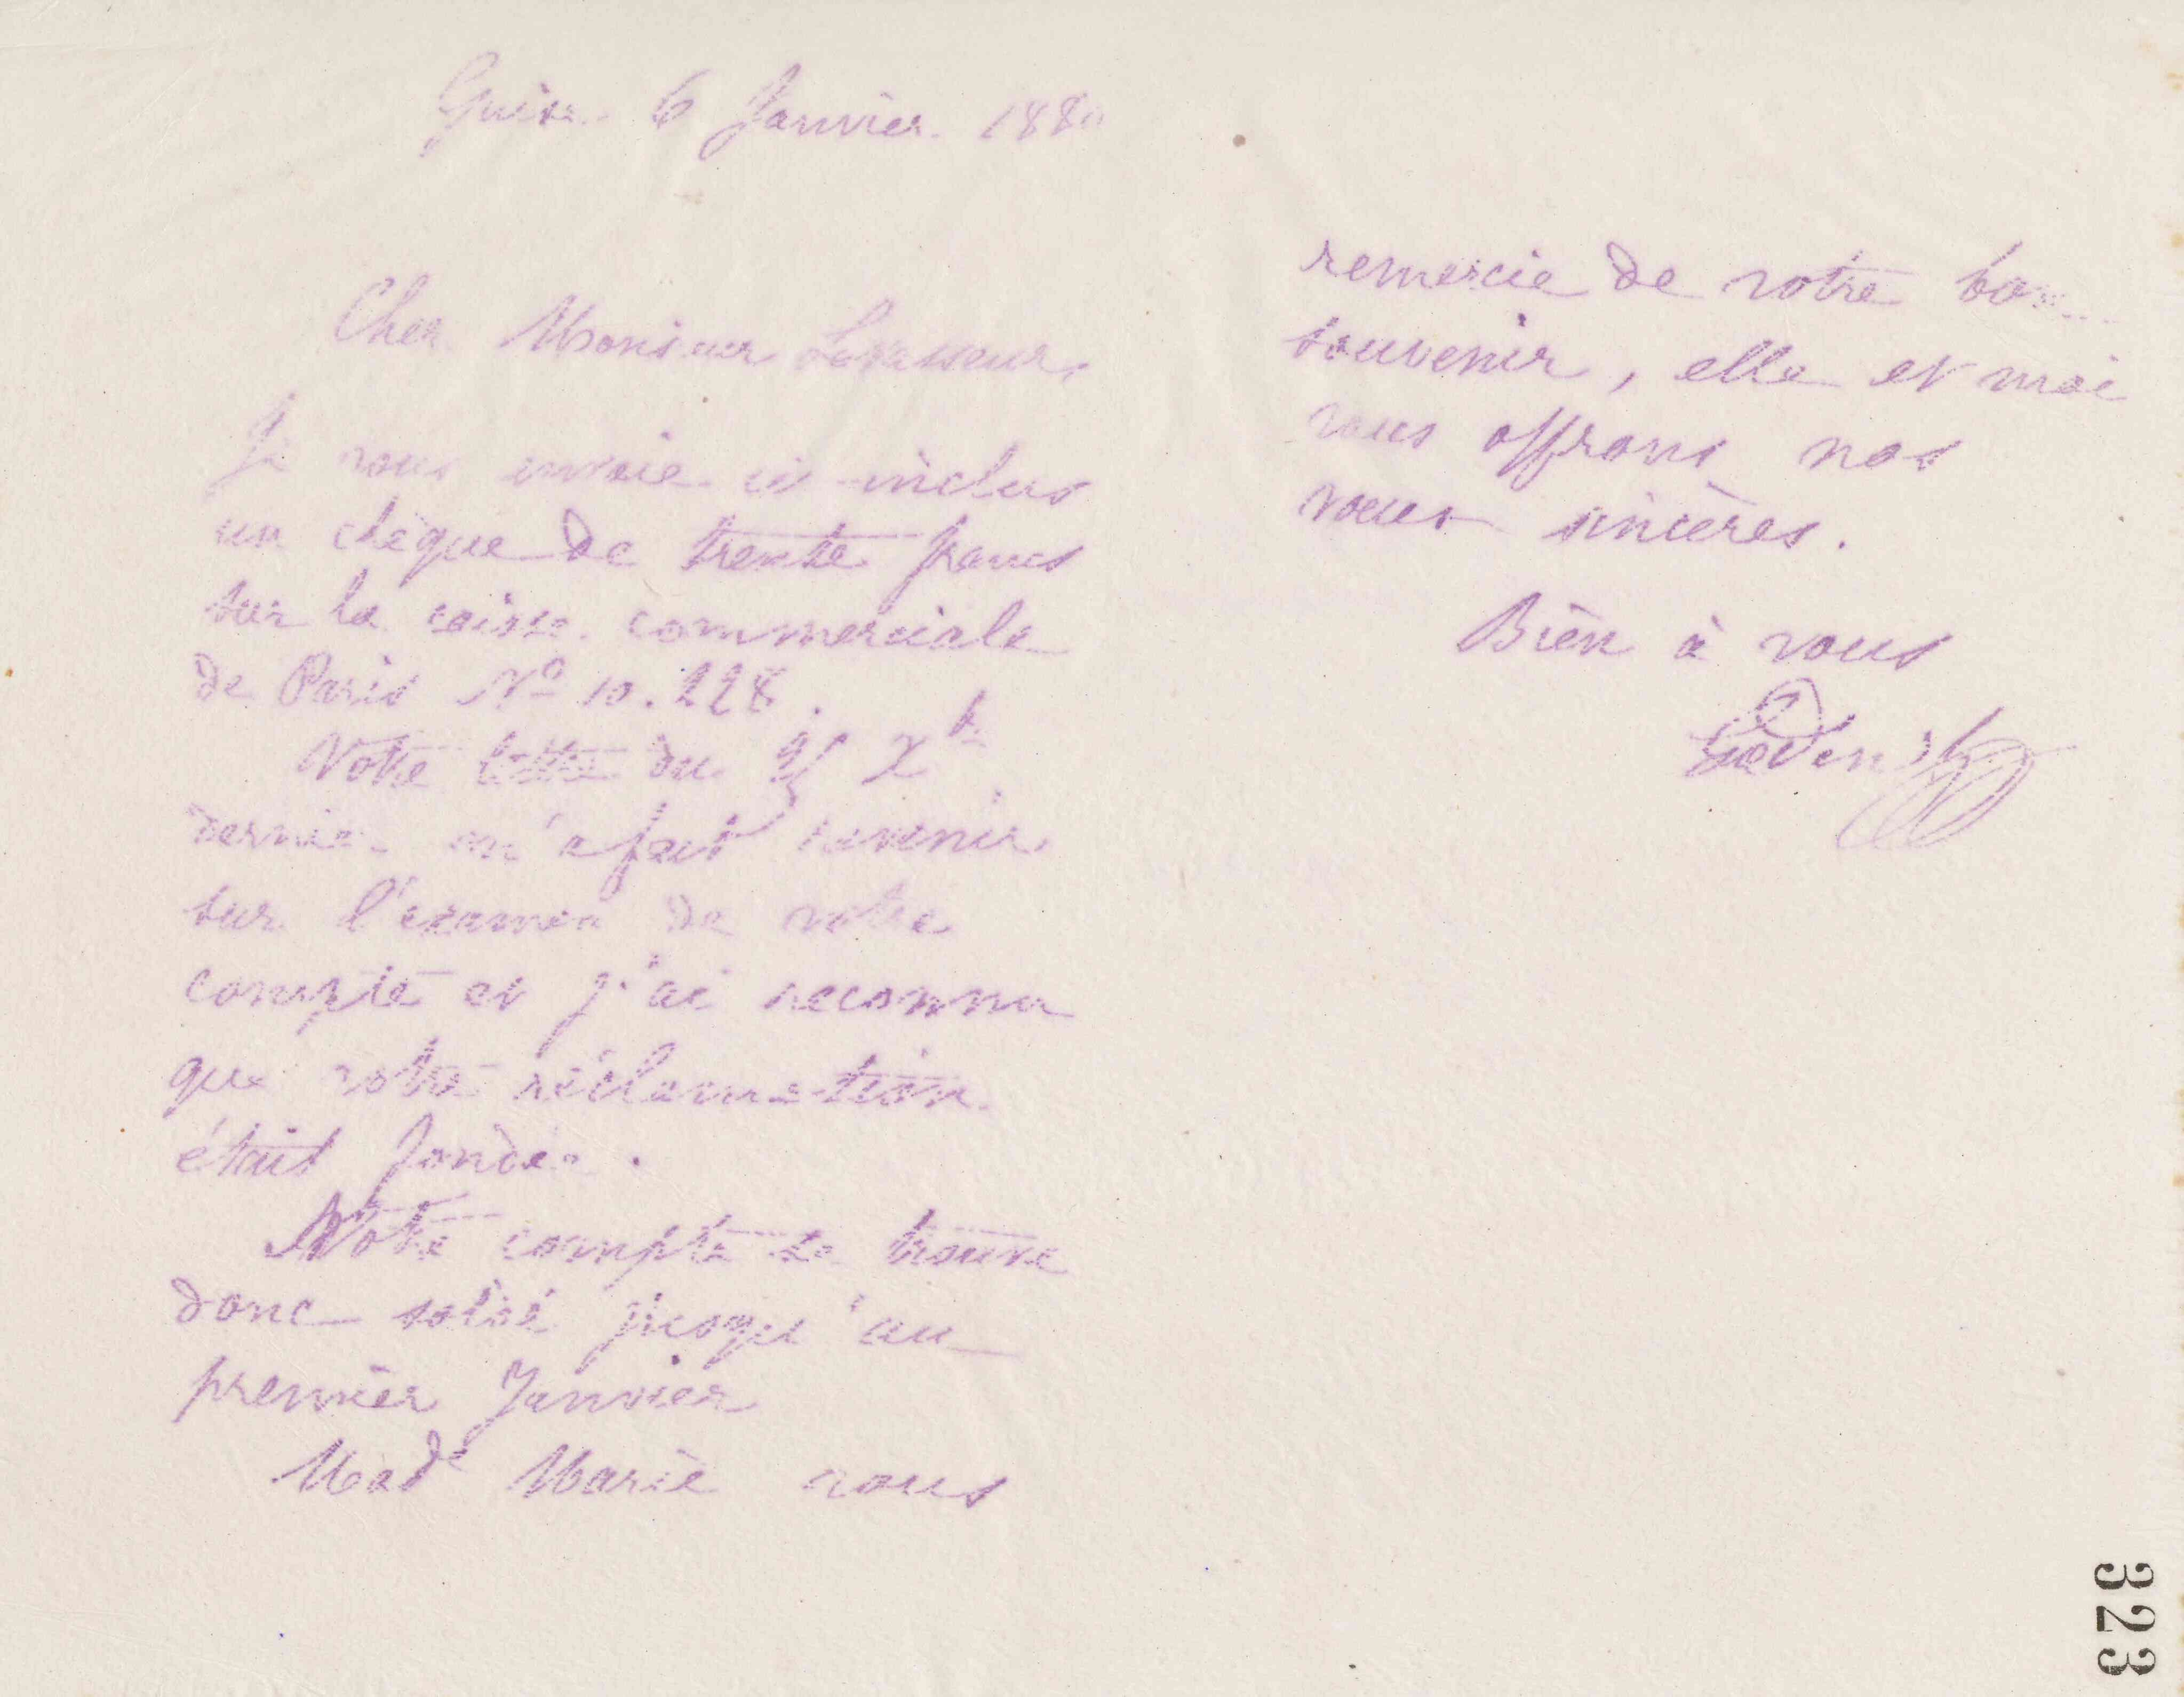 Guise 6 Janvier 1880
Cher Monsieur
Je vous envoie ci-inclus
un chèque de trente francs
sur la caisse commerciale
de Paris Nº 10.228.
Votre lettre du Xbre
dernier m'a fait revenir
sur l'examen de votre
compte et j'ai reconnu
que votre réclamation
était fondée.
Notre compte se trouve
donc soldé jusqu'au
premier Janvier
Made Marie vous
remercie de votre bon
souvenir, elle et moi
vous offrons nos
vœux sincères.
Bien à vous
Godin
323